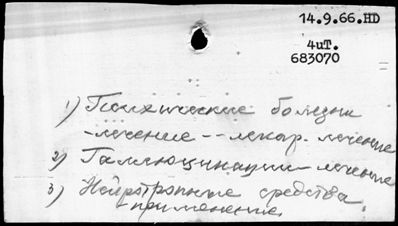 14.9.66.HD
4иТ.
683070
1) Психические болезни
-лечение--лекар. лечение
2) Галлюцинации-лечение
3) Нейротропные средства
-применение.